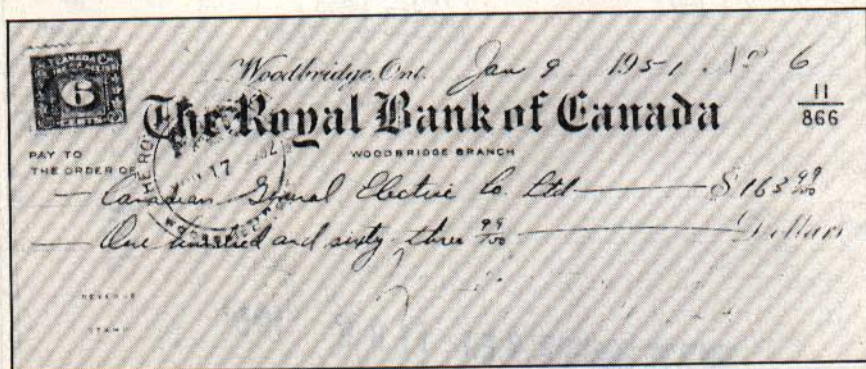 CANADA
6
Woodbridge, Ont. Jan 9 1951 No 6
The Royal Bank of Canada
11
866
WOODBRIDGE BRANCH
PAY TO
THE ORDER OF
THE RO
17
Canadian General Electric Co. Ltd $163 99/100
One hundred and sixty three 99/100 Dollars
REVENUE
STAMP